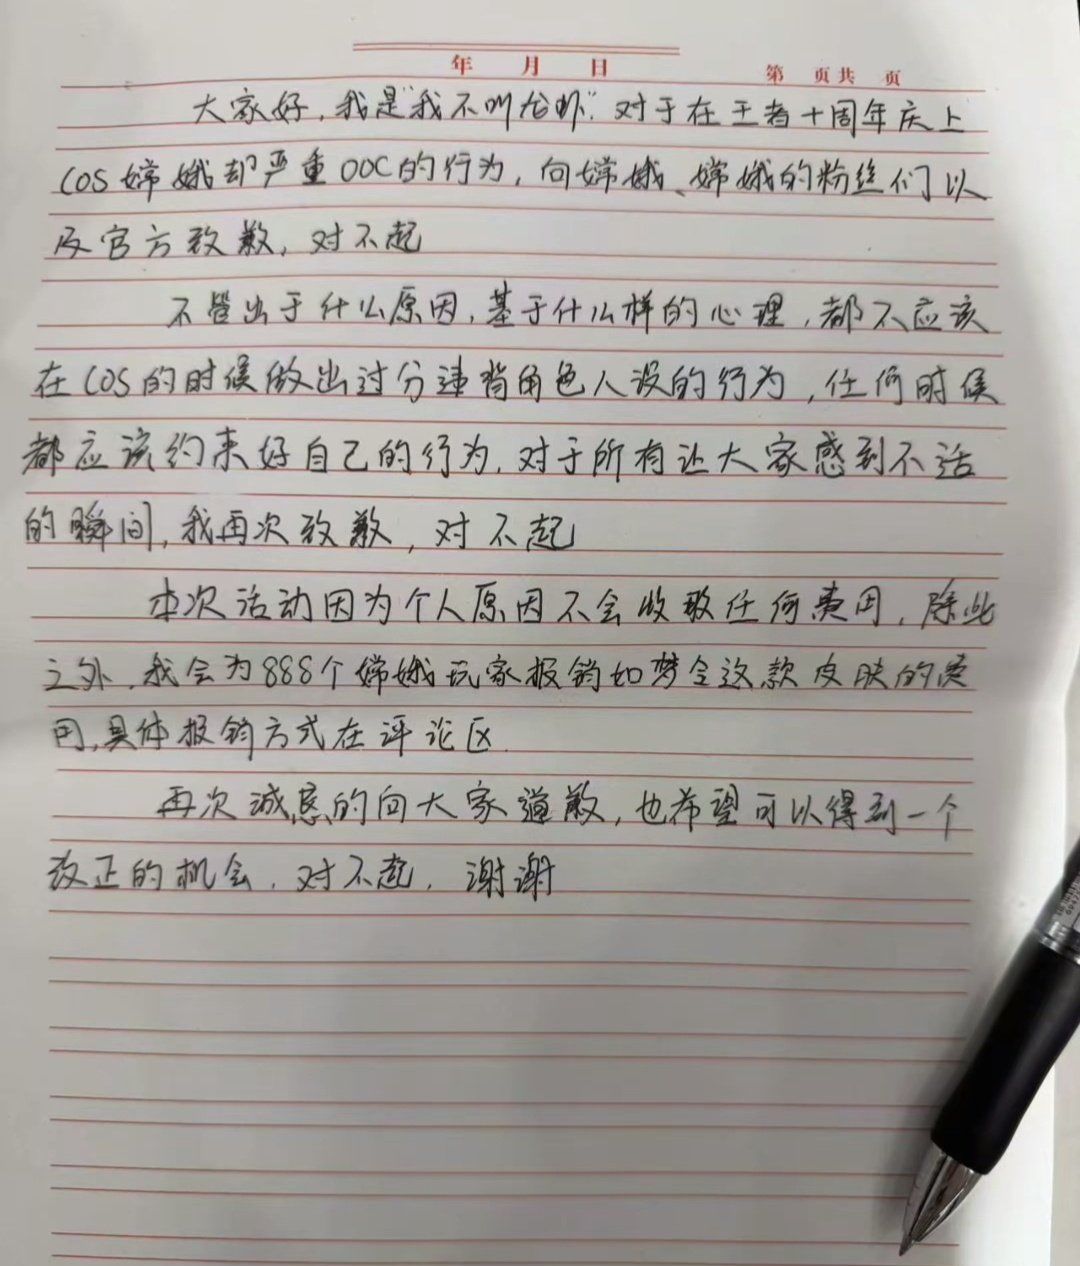 年 月 日
第 页共 页
大家好，我是“我不叫龙虾”对于在王者十周年庆上
COS嫦娥却严重OOC的行为，向嫦娥、嫦娥的粉丝们以
及官方致歉，对不起
不管出于什么原因，基于什么样的心理，都不应该
在COS的时候做出过分违背角色人设的行为，任何时候
都应该约束好自己的行为，对于所有让大家感到不适
的瞬间，我再次致歉，对不起
本次活动因为个人原因不会收取任何费用，除此
之外，我会为888个嫦娥玩家报销如梦令这款皮肤的费
用，具体报销方式在评论区
再次诚恳的向大家道歉，也希望可以得到一个
改正的机会，对不起，谢谢